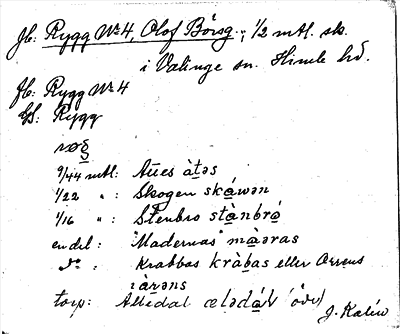 Jb: Rygg Nr 4, Olof Börsg.; 1/2 mtl. sk.
i Valinge sn. Himle hd.
Jb: Rygg Nr 4
Gs: Rygg
9/44 mtl: Aues àtəs
1/22 " : Skogen skáwən
1/16 " : Stenbro stànbró
en del: "Madernas" màəras
do : Krabbas kràbas eller Arrens
ìàrəns
torp: Alledal ælədál (öde)
J. Kalén